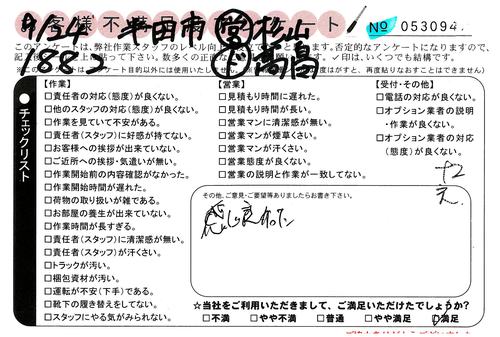 お客様不満足度アンケート
No 053094
9/24 半田市 営 杉山
1883 高畠
このアンケートは、弊社作業スタッフのレベル向上
否定的なアンケートになりますので、
数多くの正直な
印は、いくつでも結構です。
このアンケート目的以外には使用いたし
はがすと、再度貼りなおすことはできません)
チェックリスト
【作業】
□責任者の対応(態度)が良くない。
□他のスタッフの対応(態度)が良くない。
□作業を見ていて不安がある。
□責任者(スタッフ)に好感が持てない。
□お客様への挨拶が出来ていない。
□ご近所への挨拶・気遣いが無い。
□作業開始前の内容確認がなかった。
□作業開始時間が遅れた。
□荷物の取り扱いが雑である。
□お部屋の養生が出来ていない。
□作業時間が長すぎる。
□責任者(スタッフ)に清潔感が無い。
□責任者(スタッフ)が汗くさい。
□トラックが汚い。
□梱包資材が汚い。
□運転が不安(下手)である。
□靴下の履き替えをしてない。
□スタッフにやる気がみられない。
【営業】
□見積もり時間に遅れた。
□見積もり時間が長い。
□営業マンに清潔感が無い。
□営業マンが煙草くさい。
□営業マンが汗くさい。
□営業態度が良くない。
□営業の説明と作業が一致してない。
【受付・その他】
□電話の対応が良くない。
□オプション業者の説明
・作業が良くない。
□オプション業者の対応
(態度)が良くない。
その他、ご意見・ご要望等ありましたらお書き下さい。
感じ良かった
☆当社をご利用いただきまして、ご満足いただけたでしょうか?
□不満 □やや不満 □普通 □やや満足 □満足